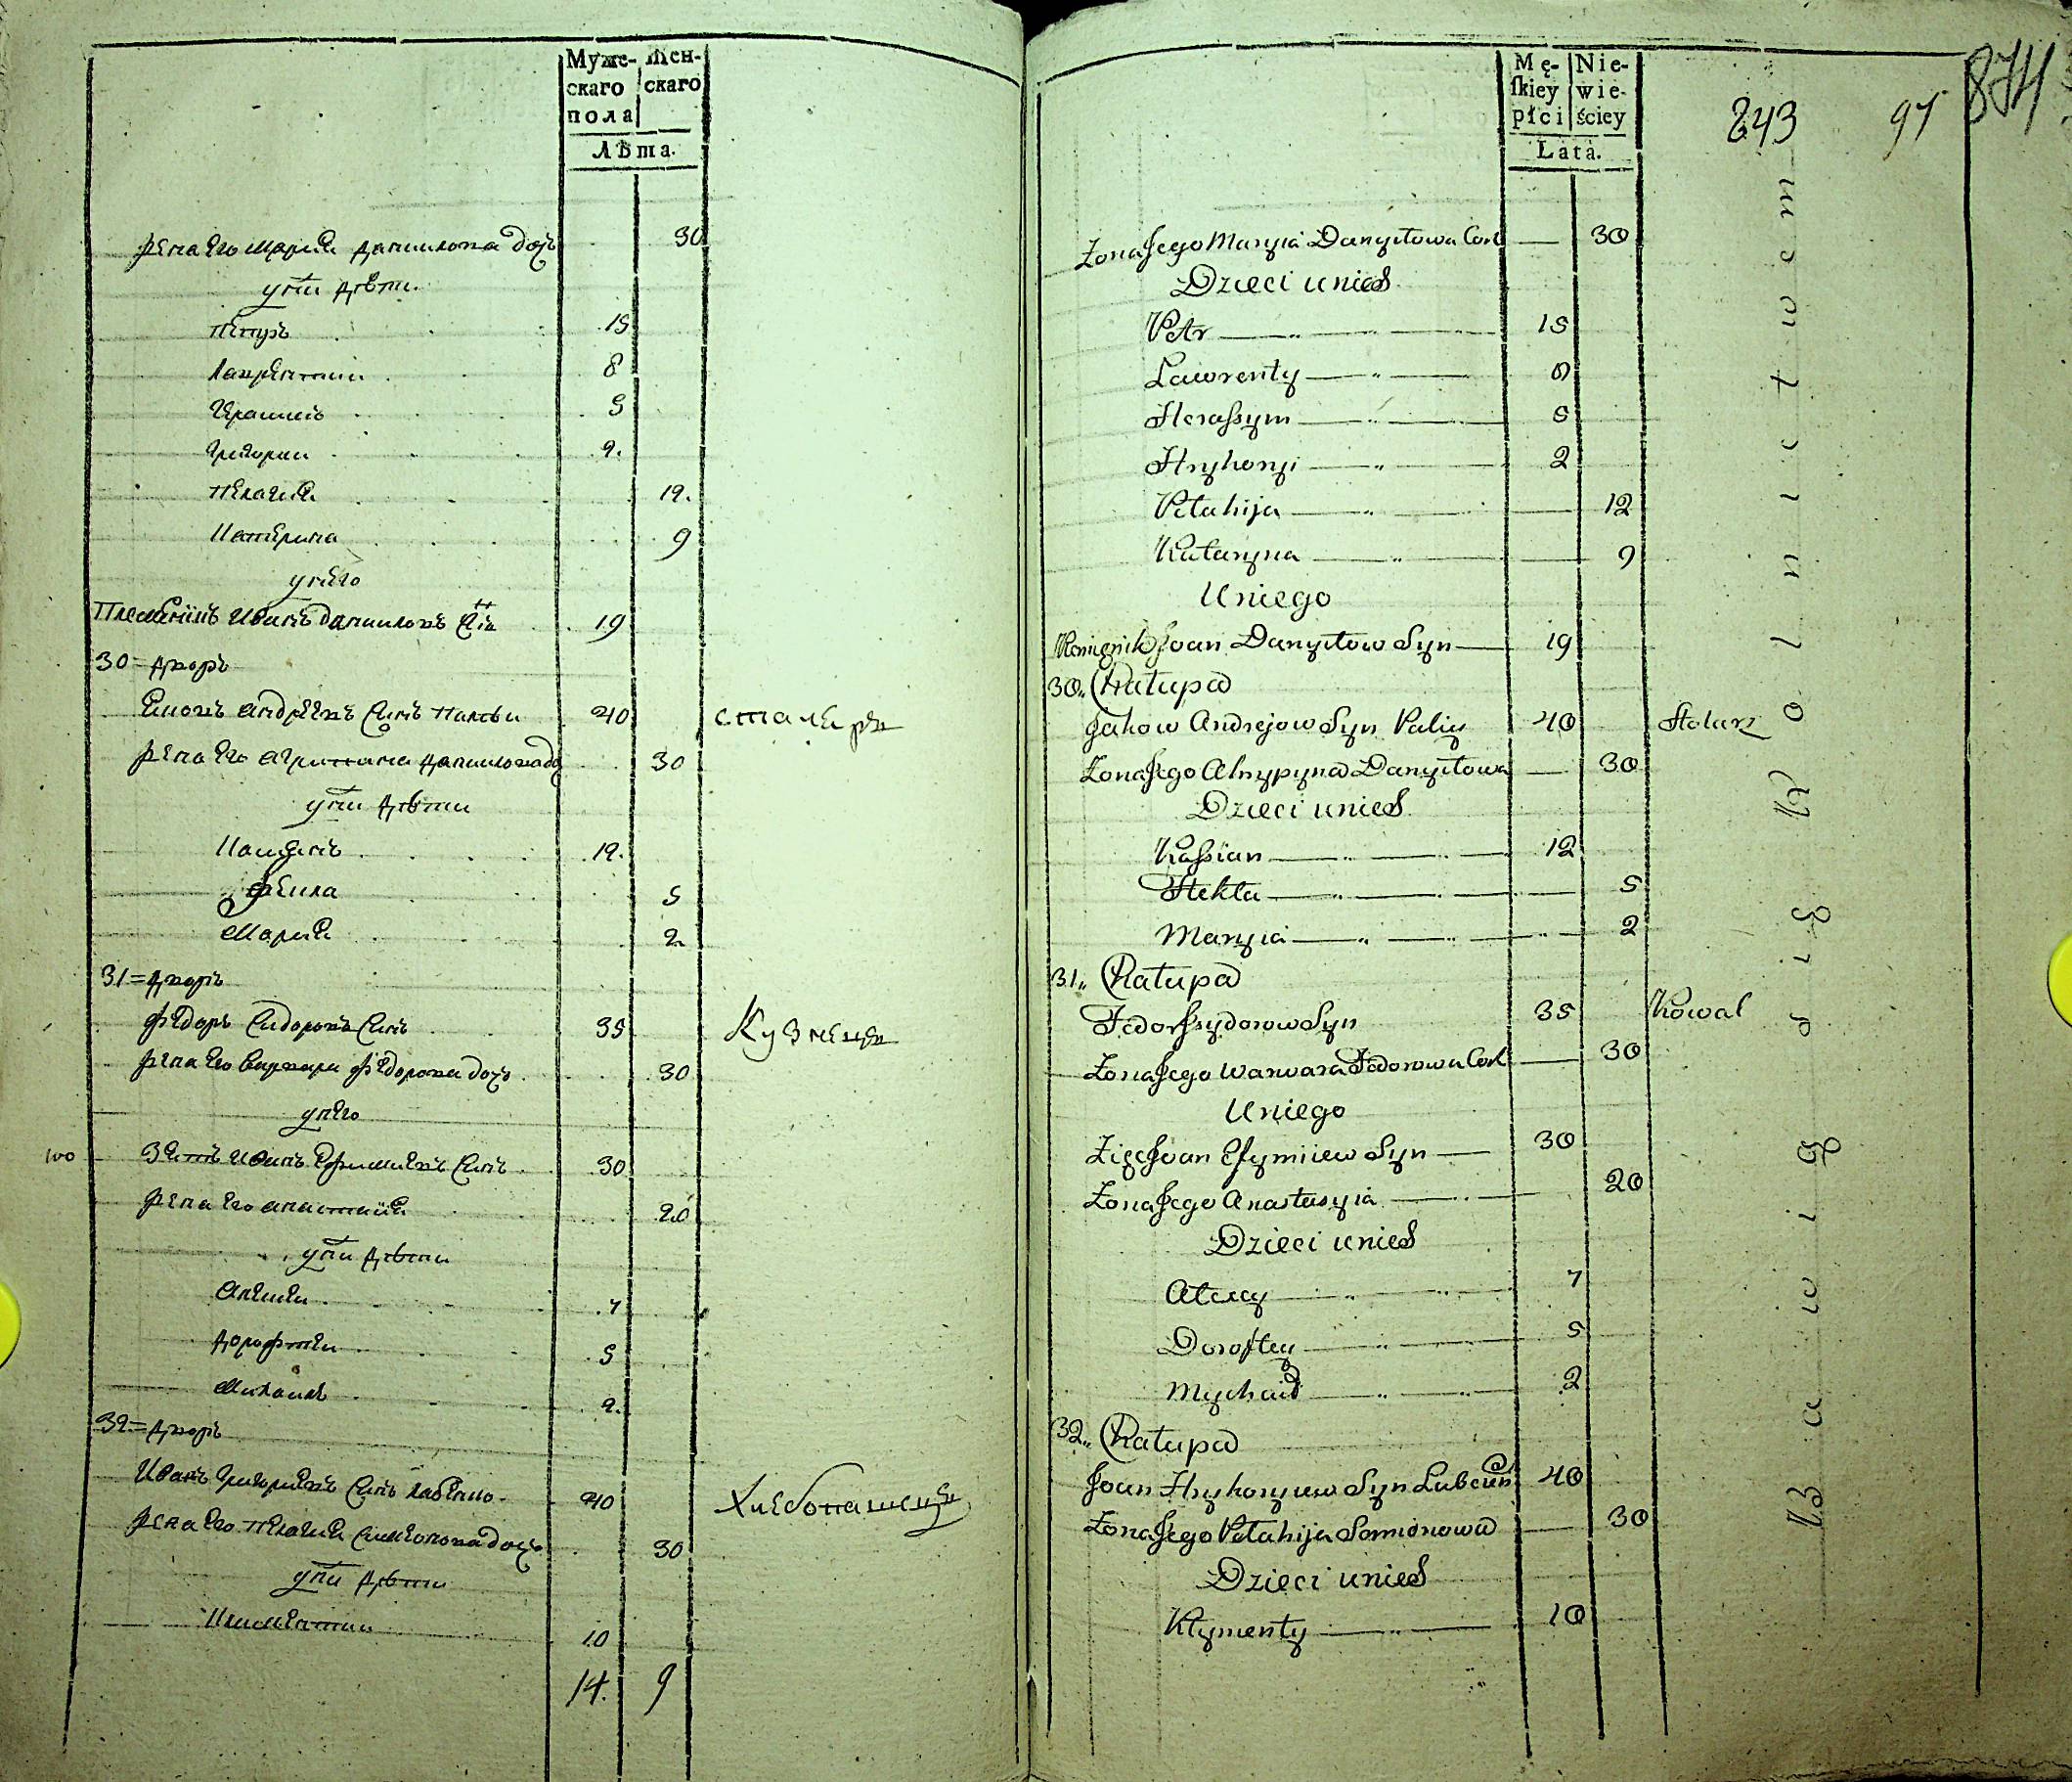 Муже-
скаго
пола
Жен-
скаго
Лѣта.
жена его Мария Данилова дочь 30
у ни дѣти
Петръ 15
Лаврентий 8
Герасимъ 5
Григорий 2.
Пелагия 12.
Катерина 9
у него
Племѣникъ Иванъ Даниловъ Сынъ 19
30 = дворъ
Яковъ Андреевъ Синъ Палѣй 40 столяръ
жена его Агрипина Данилова до 30
у ни дѣти
Касиянъ 12.
Фекла 5
Мария 2
31 = дворъ
Федоръ Сидоровъ Синъ 35 Кузнецъ
жена его Варвара Федорова дочь 30
у него
100 Зять Иванъ Ефимиевъ Синъ 30
жена его Анастасия 20
у ни дѣти
Алексей 7
Дорофтей 5
Михаилъ 2.
32 = дворъ
Иванъ Григориевъ Синъ Лабенко 40 Хлебопашецъ
жена его Пелагия Симеонова дочь 30
у ни дѣти
Климентий 10
14. 9
Mę-
ſkiey
płci
Nie-
wie-
ściey
Lata.
243 97 874
Żona Jego Maryia Danyłowa Cor 30
Dzieci unich
Petr 15
Lawrenty 8
Herassym 5
Hryhoryi 2
Pełahija 12
Kataryna 9
U niego
Plemięnik Joan Danyłow Syn 19
30,, Chałupa
Jakow Andrejow Syn Palij 40 Stolarz
Żona Jego Ahrypyna Danyłowa 30
Dzieci unich
Kassian 12
Thekla 5
Maryia 2
31,, Chałupa
Fedor Sydorow Syn 35 Kowal
Żona Jego Warwara Fedorowa Cor 30
U niego
Zięć Joan Efymiiew Syn 30
Żona Jego Anastasyia 20
Dzieci unich
Alexy 7
Doroftey 5
Mychaił 2
32,, Chałupa
Joan Hryhoryiew Syn Labeńko 40
Żona Jego Pełahija Semionowa 30
Dzieci unich
Klymenty 10
Bawią się Rolnictwem